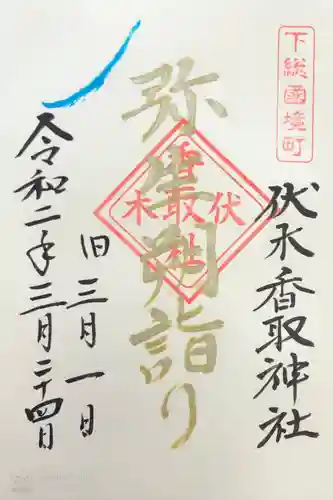 下総國境町
伏木香取神社
弥生朔詣り
伏木
香取社
旧三月一日
令和二年三月二十四日